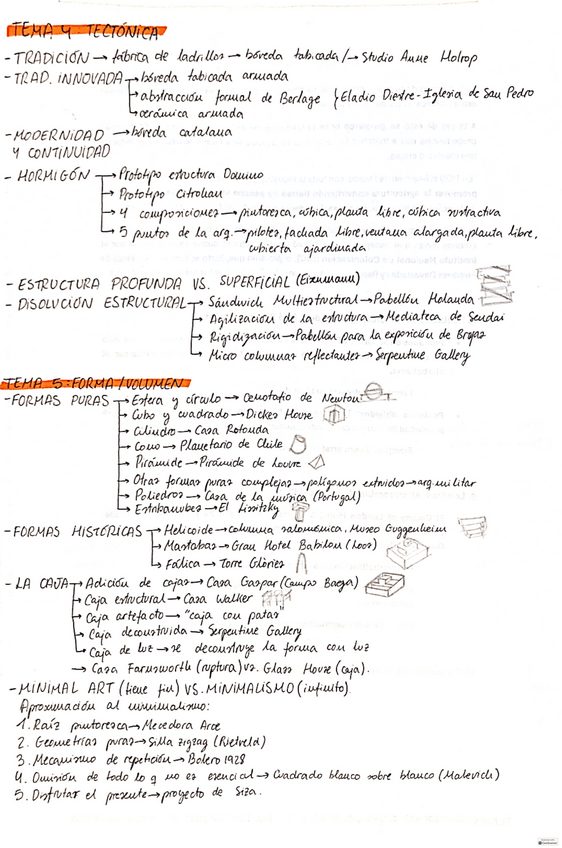 TEMA 4: TECTÓNICA
- TRADICIÓN → fábrica de ladrillos → bóveda tabicada /→ Studio Anne Holtrop
- TRAD. INNOVADA → bóveda tabicada armada
→ abstracción formal de Berlage } Eladio Dieste - Iglesia de San Pedro
→ cerámica armada
- MODERNIDAD → bóveda catalana
Y CONTINUIDAD
- HORMIGÓN → Prototipo estructura Domino
→ Prototipo Citrohan
→ 4 composiciones → pintoresca, cúbica, planta libre, cúbica sustractiva
→ 5 puntos de la arq. → pilotes, fachada libre, ventana alargada, planta libre,
cubierta ajardinada
- ESTRUCTURA PROFUNDA VS. SUPERFICIAL (Eisenmann)
- DISOLUCIÓN ESTRUCTURAL → Sándwich Multiestructural → Pabellón Holanda
→ Agilización de la estructura → Mediateca de Sendai
→ Rigidización → Pabellón para la exposición de Brujas
→ Micro columnas reflectantes → Serpentine Gallery
TEMA 5: FORMA / VOLUMEN
- FORMAS PURAS → Esfera y círculo → Cenotafio de Newton
→ Cubo y cuadrado → Dickes House
→ Cilindro → Casa Rotonda
→ Cono → Planetario de Chile
→ Pirámide → Pirámide de Louvre
→ Otras formas puras complejas → polígonos extruidos → arq. militar
→ Poliedros → Casa de la música (Portugal)
→ Estribanubes → El Lissitzky
- FORMAS HISTÓRICAS → Helicoide → columna salomónica, Museo Guggenheim
→ Mastabas → Gran Hotel Babilon (Loos)
→ Fálica → Torre Glòries
- LA CAJA → Adición de cajas → Casa Gaspar (Campo Baeza)
→ Caja estructural → Casa Walker
→ Caja artefacto → "caja con patas"
→ Caja deconstruida → Serpentine Gallery
→ Caja de luz → se deconstruye la forma con luz
→ Casa Farnsworth (ruptura) vs. Glass House (caja).
- MINIMAL ART (tiene fin) VS. MINIMALISMO (infinito)
Aproximación al minimalismo:
1. Raíz pintoresca → Mecedora Arce
2. Geometrías puras → Silla zigzag (Rietveld)
3. Mecanismo de repetición → Bolero 1928
4. Omisión de todo lo q no es esencial → Cuadrado blanco sobre blanco (Malevich)
5. Disfrutar el presente → proyecto de Siza.